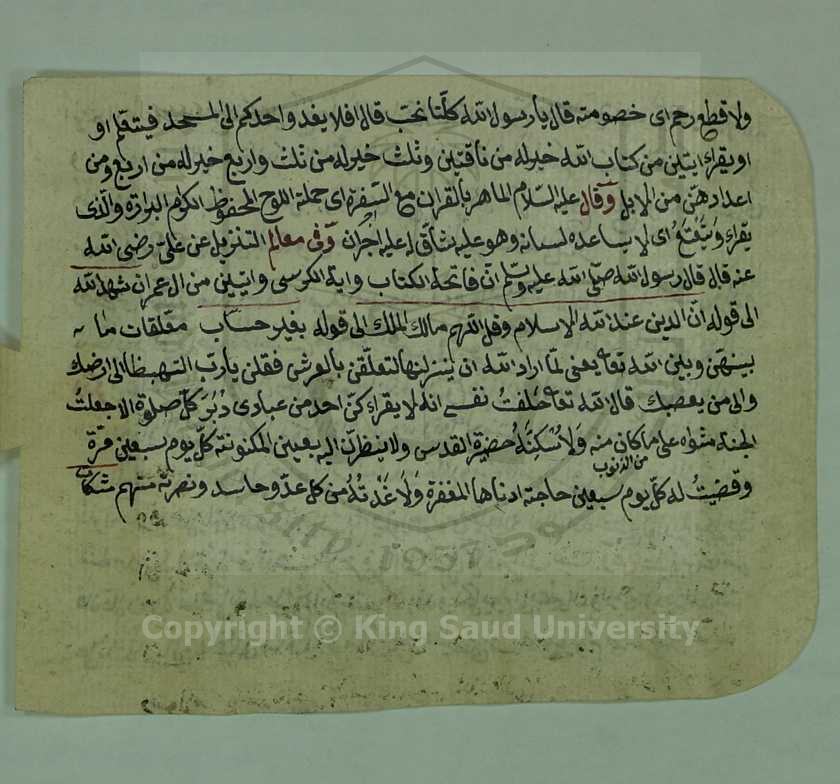 ولا قطع رحم اى خصومته قال يا رسول الله كلّنا نحبّ قال افلا يغد واحدكم الى المسجد فيتعلّم او
او يقراء ايتين من كتاب الله خير له من ناقتين وثلث خير له من ثلث واربع خير له من اربع ومن
اعدادهنّ من الابل وقال عليه السّلام الماهر بالقران مع السّفرة اى حملة اللوح المحفوظ الكرام البررة والّذى
يقراء ويتتعتع اى لا يساعده لسانه وهو عليه شاقّ له اجران وفى معالم التنزيل عن علىّ رضى الله
عنه قال قال رسول الله صلّى الله عليه وسلّم انّ فاتحة الكتاب واية الكرسى وايتين من ال عمران شهد الله
الى قوله انّ الدين عند الله الاسلام وقل اللّهم مالك الملك الى قوله بغير حساب معلقات ما
بينهنّ وبين الله تعا يعنى لمّا اراد الله ان ينزلنها تعلّقن بالعرش فقلن يا ربّ اتهبطنا الى ارضك
والى من يعصيك قال الله تعا حلفت نفسى انه لا يقراء كنّ احد من عبادى دُبُرَ كلّ صلوة الا جعلتُ
الجنة مثواه على ما كان منه ولاسكنتُهُ حضيرة القدس ولا ينظرن اليه بعينى المكنونة كلّ يوم سبعين مرّة
من الذنوب
وقضيتُ له كلّ يوم سبعين حاجته ادناها المغفرة ولاعذتُهُ من كل عدّو وحاسد ونصرته منهم مشكات
Copyright © King Saud University
1957